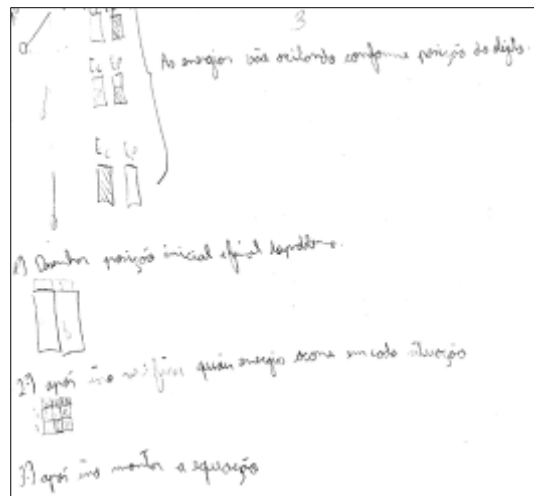 3
Ec Ep
As energias vão oscilando conforme posição do objeto.
Ec Ep
Ec Ep
1º) Desenhar posição inicial e final do problema.
2º) após isso verificar quais energia ocorre em cada situação
3º) após isso montar a equação